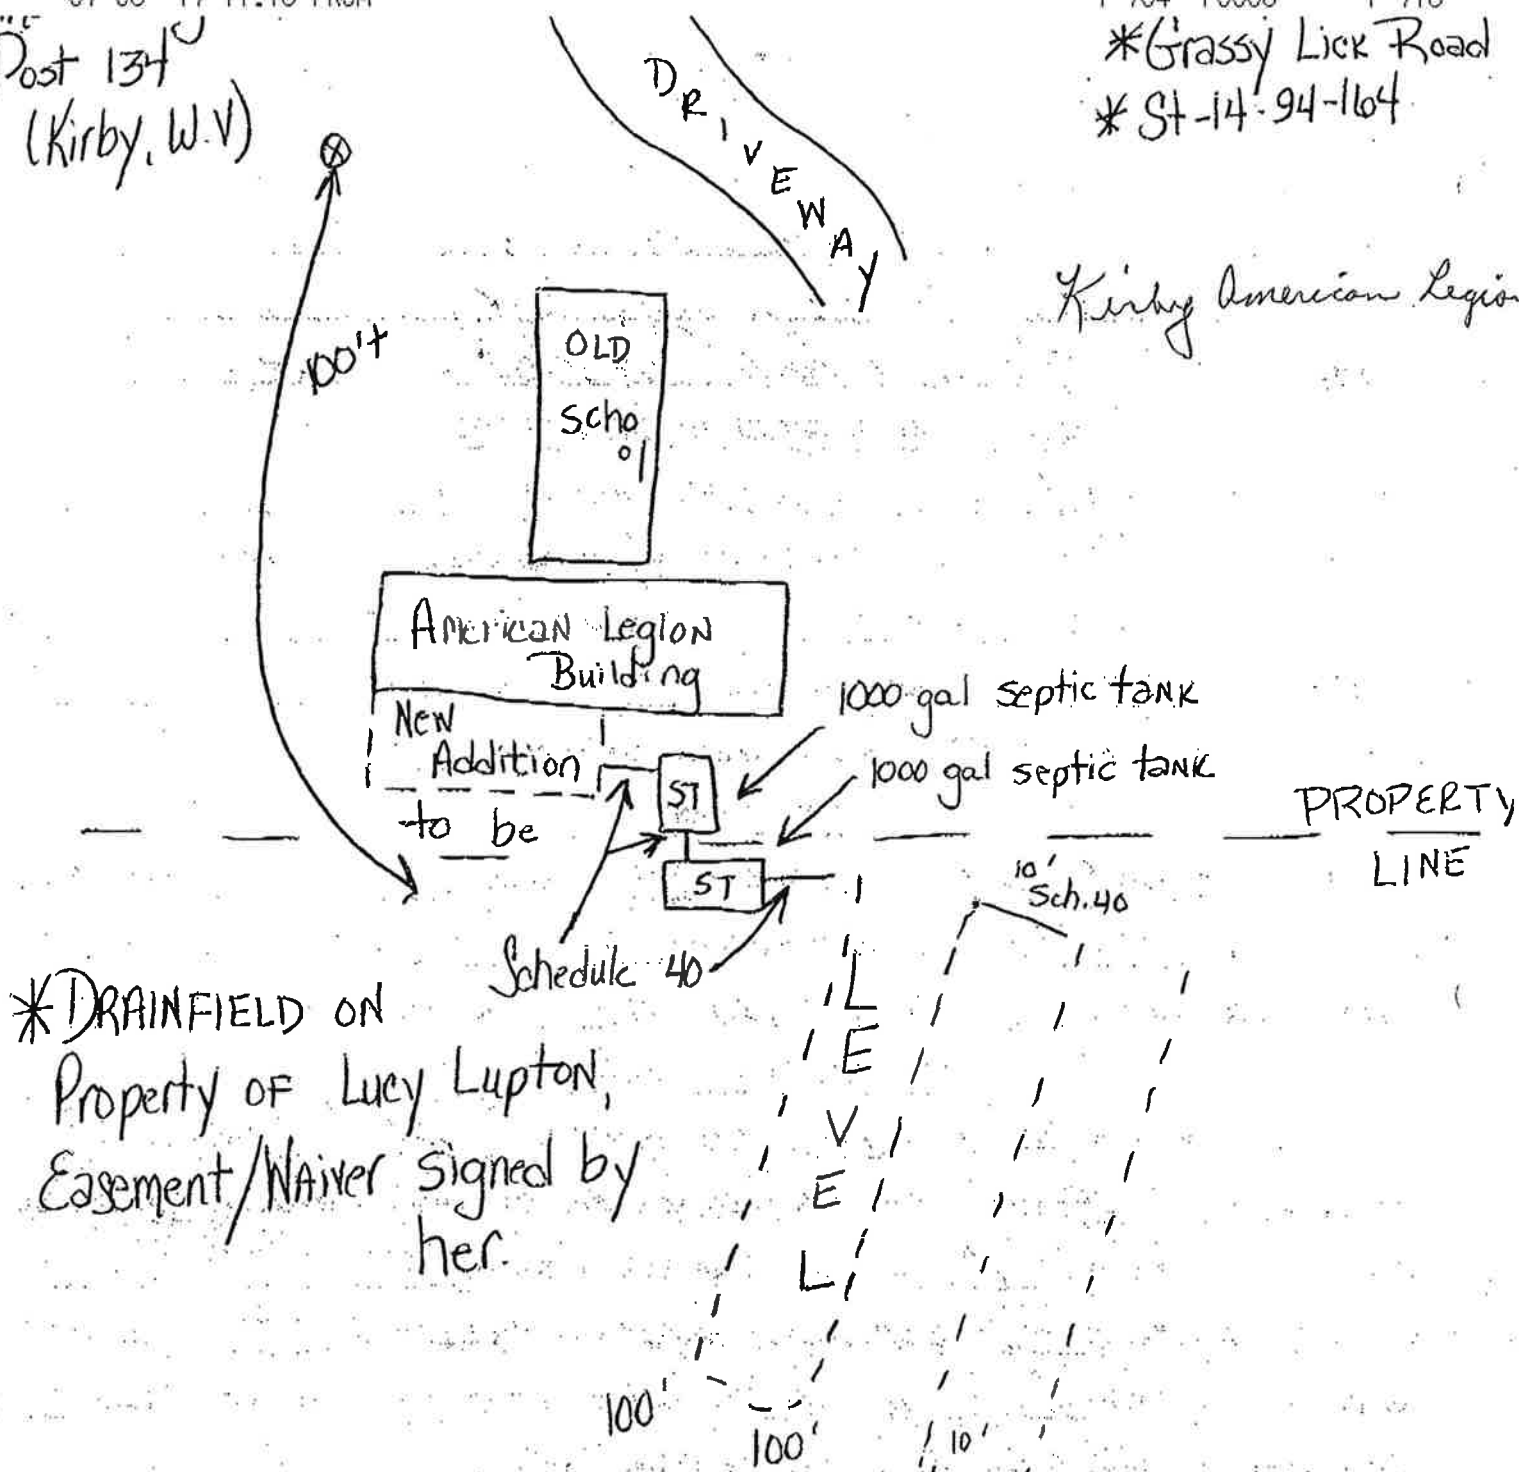 Post 134
(Kirby, W.V)
*Grassy Lick Road
*St-14-94-164
DRIVEWAY
Kirby American Legion
100'+
OLD
School
American Legion
Building
New
Addition
to be
1000 gal septic tank
1000 gal septic tank
ST
ST
PROPERTY
LINE
10'
Sch.40
Schedule 40
*DRAINFIELD ON
Property of Lucy Lupton,
Easement/Waiver signed by
her.
LEVEL
100'
100'
10'